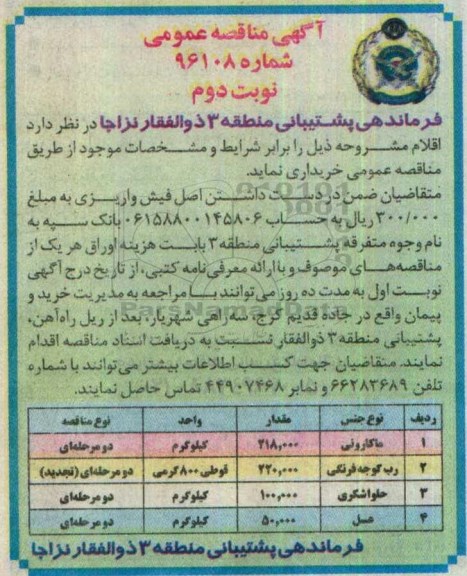 آگهی مناقصه عمومی
شماره ۹۶۱۰۸
نوبت دوم
فرماندهی پشتیبانی منطقه ۳ ذوالفقار نزاجا در نظر دارد
اقلام مشروحه ذیل را برابر شرایط و مشخصات موجود از طریق
مناقصه عمومی خریداری نماید.
متقاضیان ضمن در دست داشتن اصل فیش واریزی به مبلغ
۳۰۰/۰۰۰ ریال به حساب ۰۶۱۵۸۸۰۰۱۴۵۸۰۶ بانک سپه به
نام وجوه متفرقه پشتیبانی منطقه ۳ بابت هزینه اوراق هر یک از
مناقصه‌های موصوف و با ارائه معرفی‌نامه کتبی، از تاریخ درج آگهی
نوبت اول به مدت ده روز می‌توانند با مراجعه به مدیریت خرید و
پیمان واقع در جاده قدیم کرج، سه‌راهی شهریار، بعد از ریل راه‌آهن،
پشتیبانی منطقه ۳ ذوالفقار نسبت به دریافت اسناد مناقصه اقدام
نمایند. متقاضیان جهت کسب اطلاعات بیشتر می‌توانند با شماره
تلفن ۶۶۲۸۳۶۸۹ و نمابر ۴۴۹۰۷۴۶۸ تماس حاصل نمایند.
ردیف نوع جنس مقدار واحد نوع مناقصه
۱ ماکارونی ۲۱۸,۰۰۰ کیلوگرم دو مرحله‌ای
۲ رب گوجه فرنگی ۲۲۰,۰۰۰ قوطی ۸۰۰ گرمی دو مرحله‌ای (تجدید)
۳ حلواشکری ۱۰۰,۰۰۰ کیلوگرم دو مرحله‌ای
۴ عسل ۵۰,۰۰۰ کیلوگرم دو مرحله‌ای
فرماندهی پشتیبانی منطقه ۳ ذوالفقار نزاجا